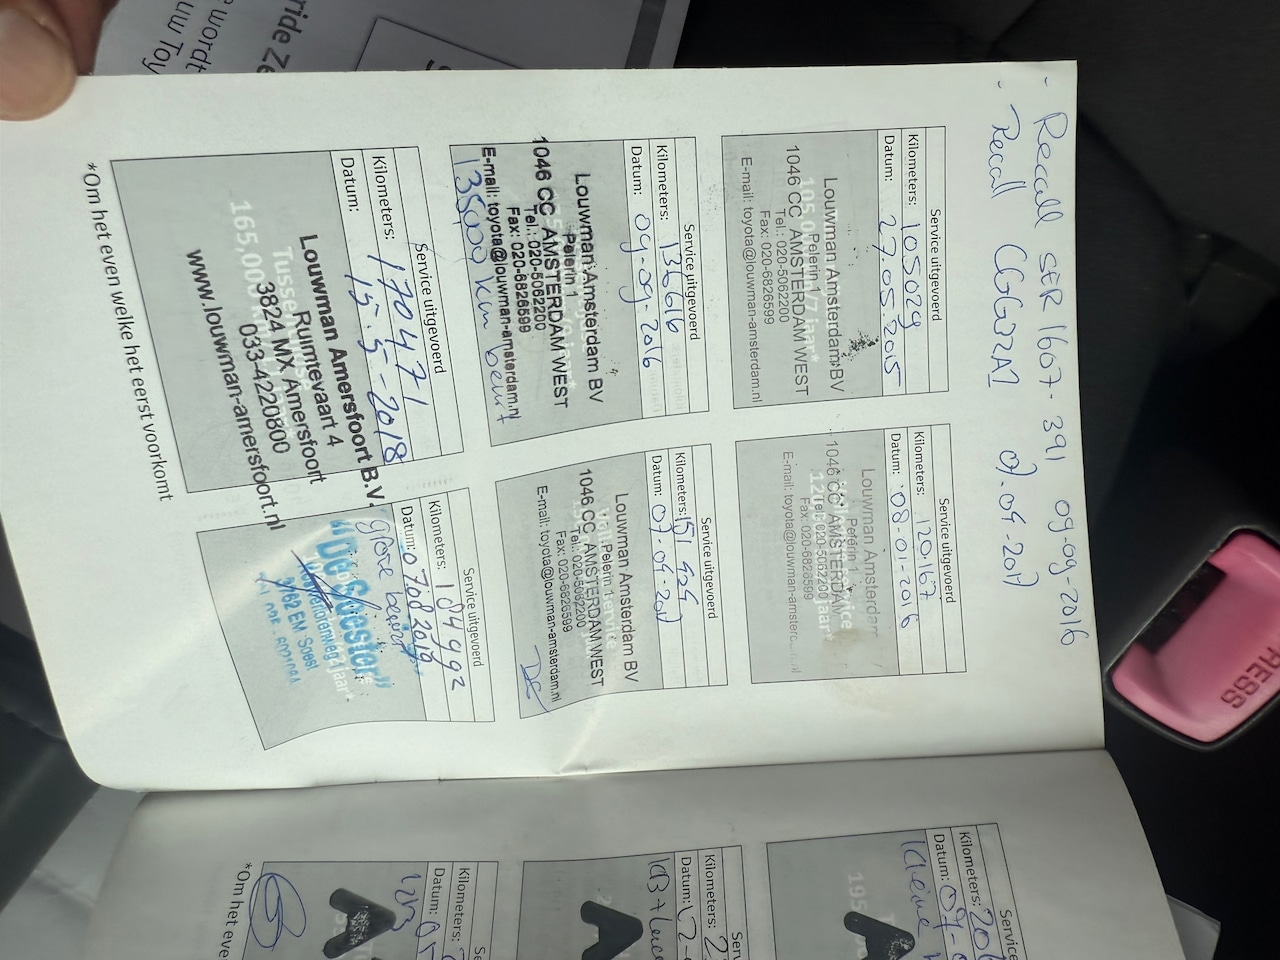 - Recall SER 1607-391 09-09-2016
- Recall CGG02A1 07.09-2017
Service uitgevoerd
Kilometers: 105029
Datum: 27.05.2015
Louwman Amsterdam BV
Pelerin 1
1046 CC AMSTERDAM WEST
Tel.: 020-5062200
Fax: 020-6826599
E-mail: toyota@louwman-amsterdam.nl
Service uitgevoerd
Kilometers: 120.167
Datum: 08-01-2016
Louwman Amsterdam
Pelerin 1
1046 CC AMSTERDAM
Tel: 020-5062200
Fax: 020-6826599
E-mail: toyota@louwman-amsterd
Service uitgevoerd
Kilometers: 136616
Datum: 09-09-2016
Louwman Amsterdam BV
Pelerin 1
1046 CC AMSTERDAM WEST
Tel.: 020-5062200
Fax: 020-6826599
E-mail: toyota@louwman-amsterdam.nl
135000 km beurt
Service uitgevoerd
Kilometers: 151.424
Datum: 07-09-2017
Louwman Amsterdam BV
Pelerin 1
1046 CC AMSTERDAM WEST
Tel.: 020-5062200
Fax: 020-6826599
E-mail: toyota@louwman-amsterdam.nl
Service uitgevoerd
Kilometers: 170471
Datum: 15-5-2018
165.000
Louwman Amersfoort B.V.
Ruimtevaart 4
3824 MX Amersfoort
033-4220800
www.louwman-amersfoort.nl
Service uitgevoerd
Kilometers: 184992
Datum: 07.08 2019
grote beurt
3762 EN Soest
*Om het even welke het eerst voorkomt
Service
Kilometers: 20
Datum: 07-0
Kleine
195
Serv
Kilometers: 2
Datum: 12-
Se
Kilometers:
Datum: 0
*Om het eve
ride Ze
wordt
uw Toy
RESS